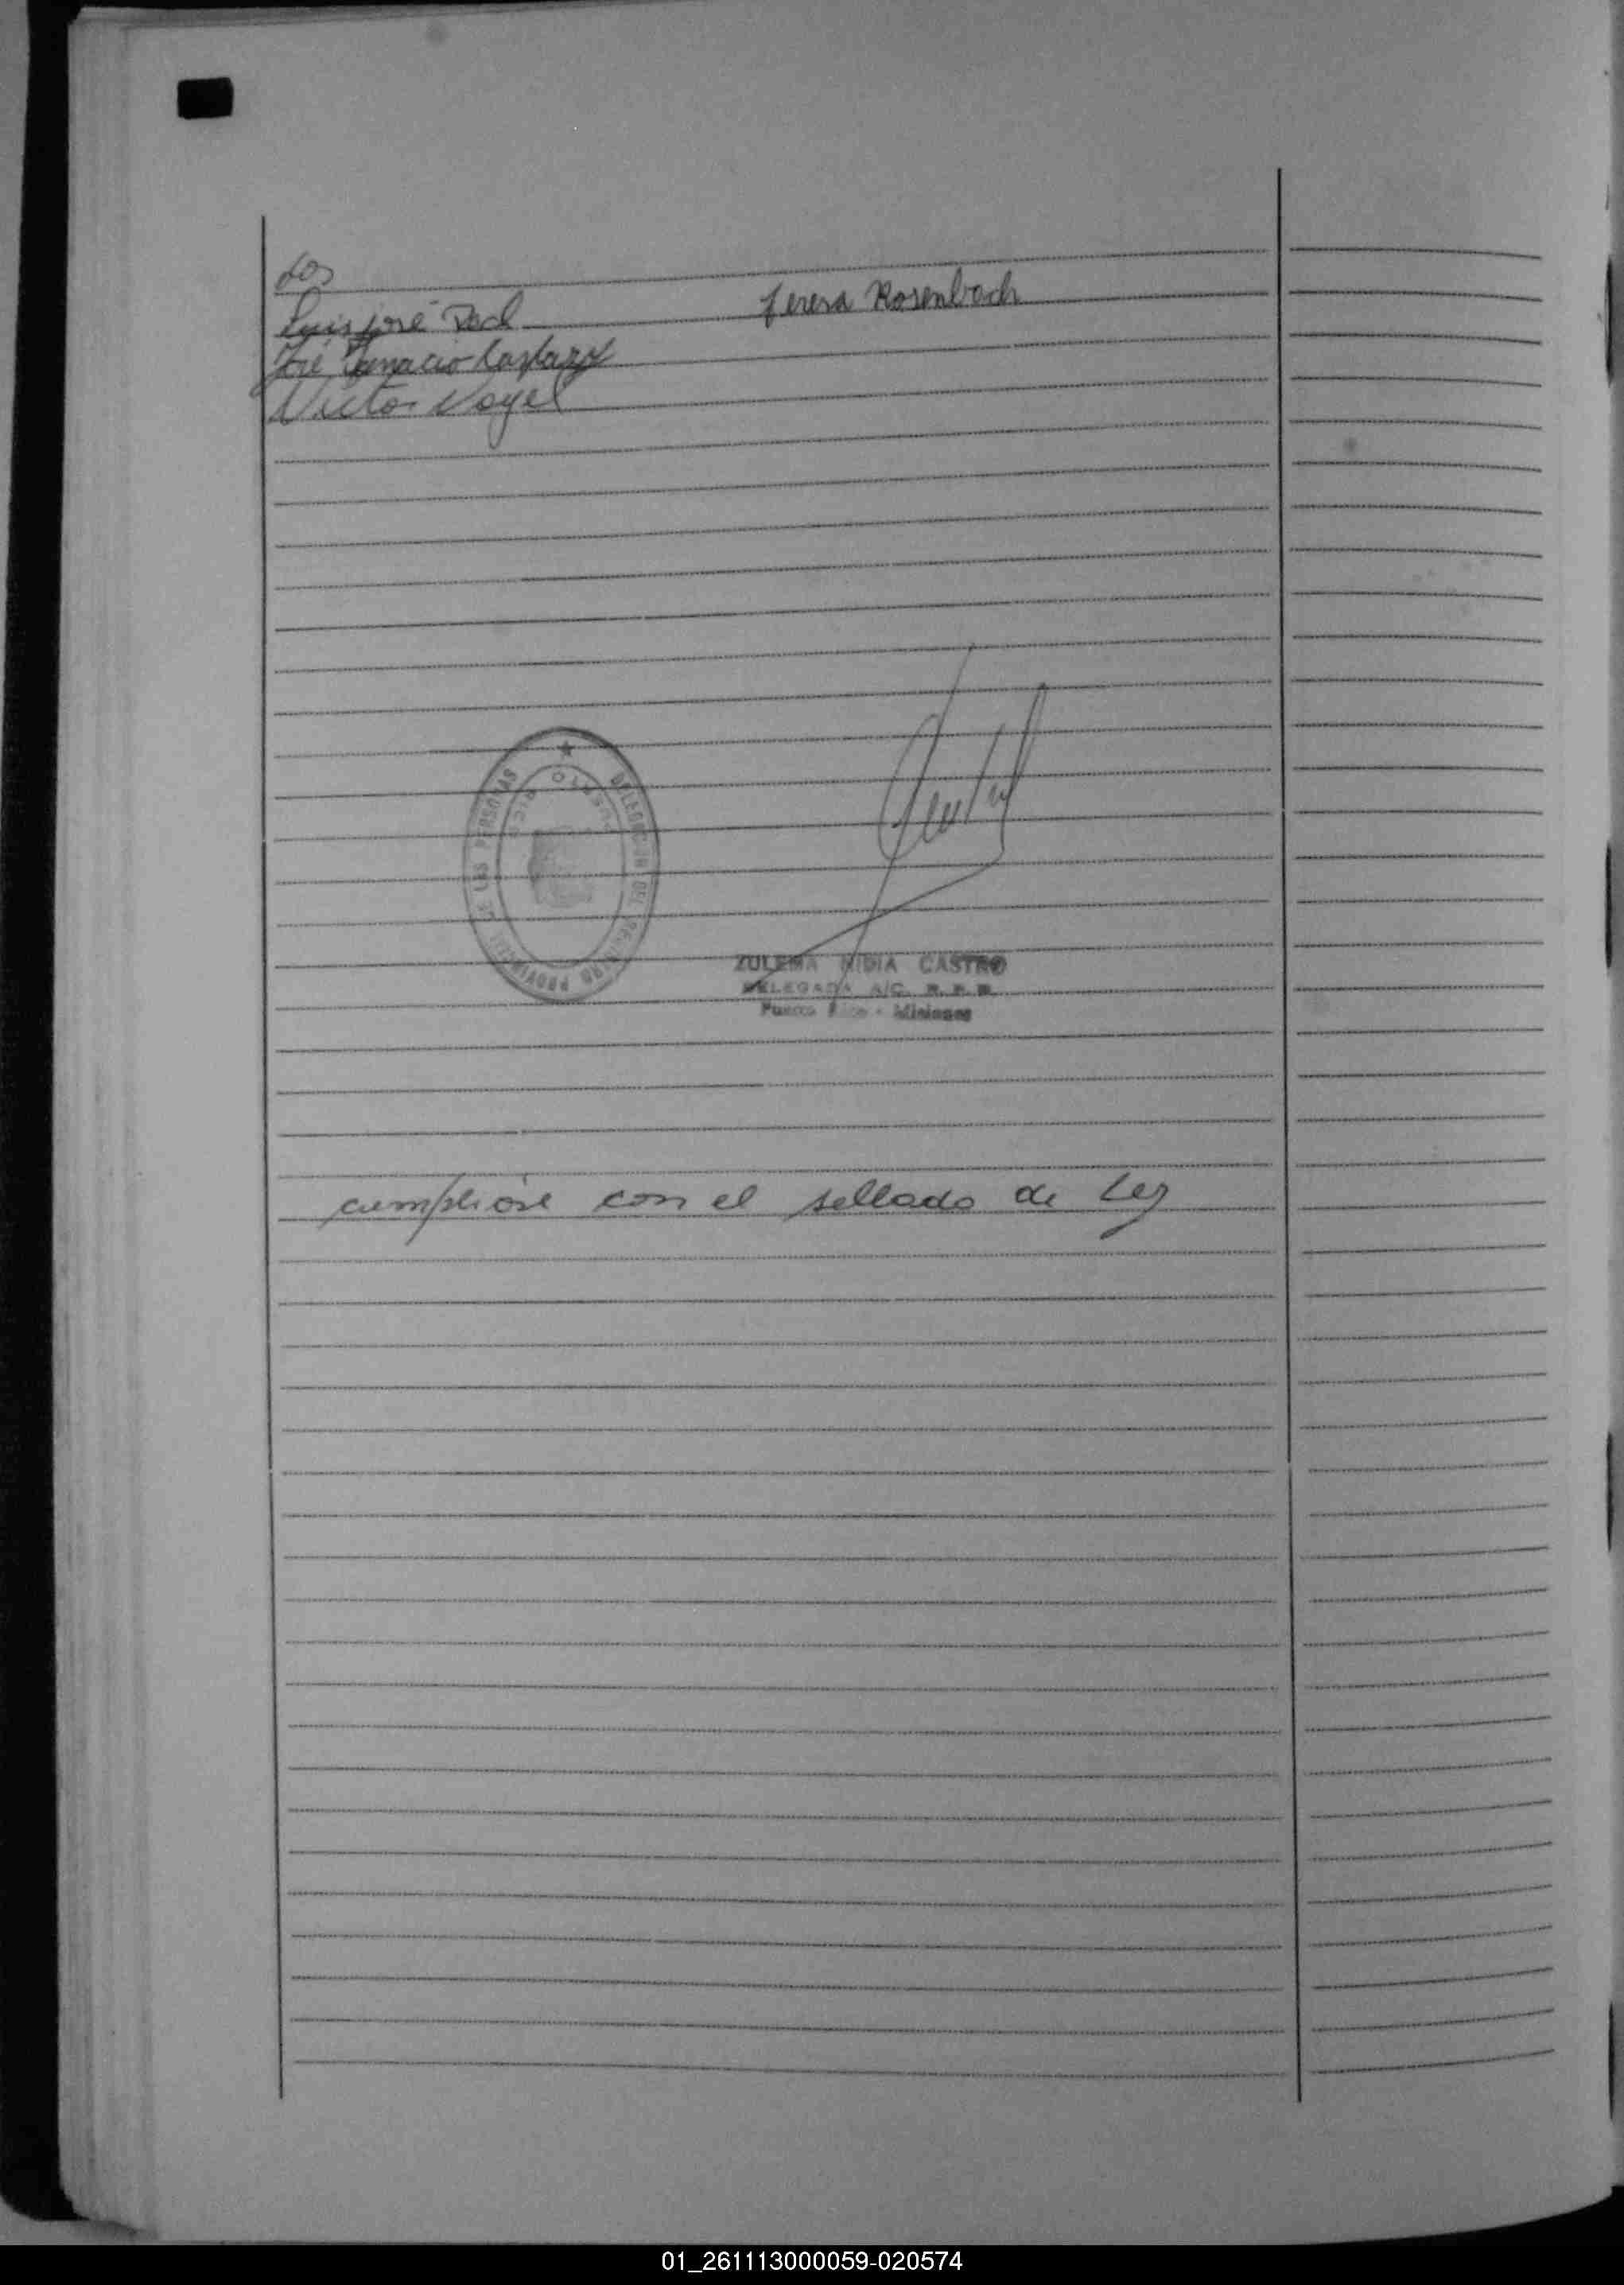 los
Luis José Dod Teresa Rosenbach
José Ignacio
Victor Vogel
DELEGACION DEL REGISTRO PROVINCIAL DE LAS PERSONAS
PUERTO RICO
ZULEMA NIDIA CASTRO
DELEGADA A/C. R. P. P.
Puerto Rico - Misiones
cumplióse con el sellado de Ley
01_261113000059-020574